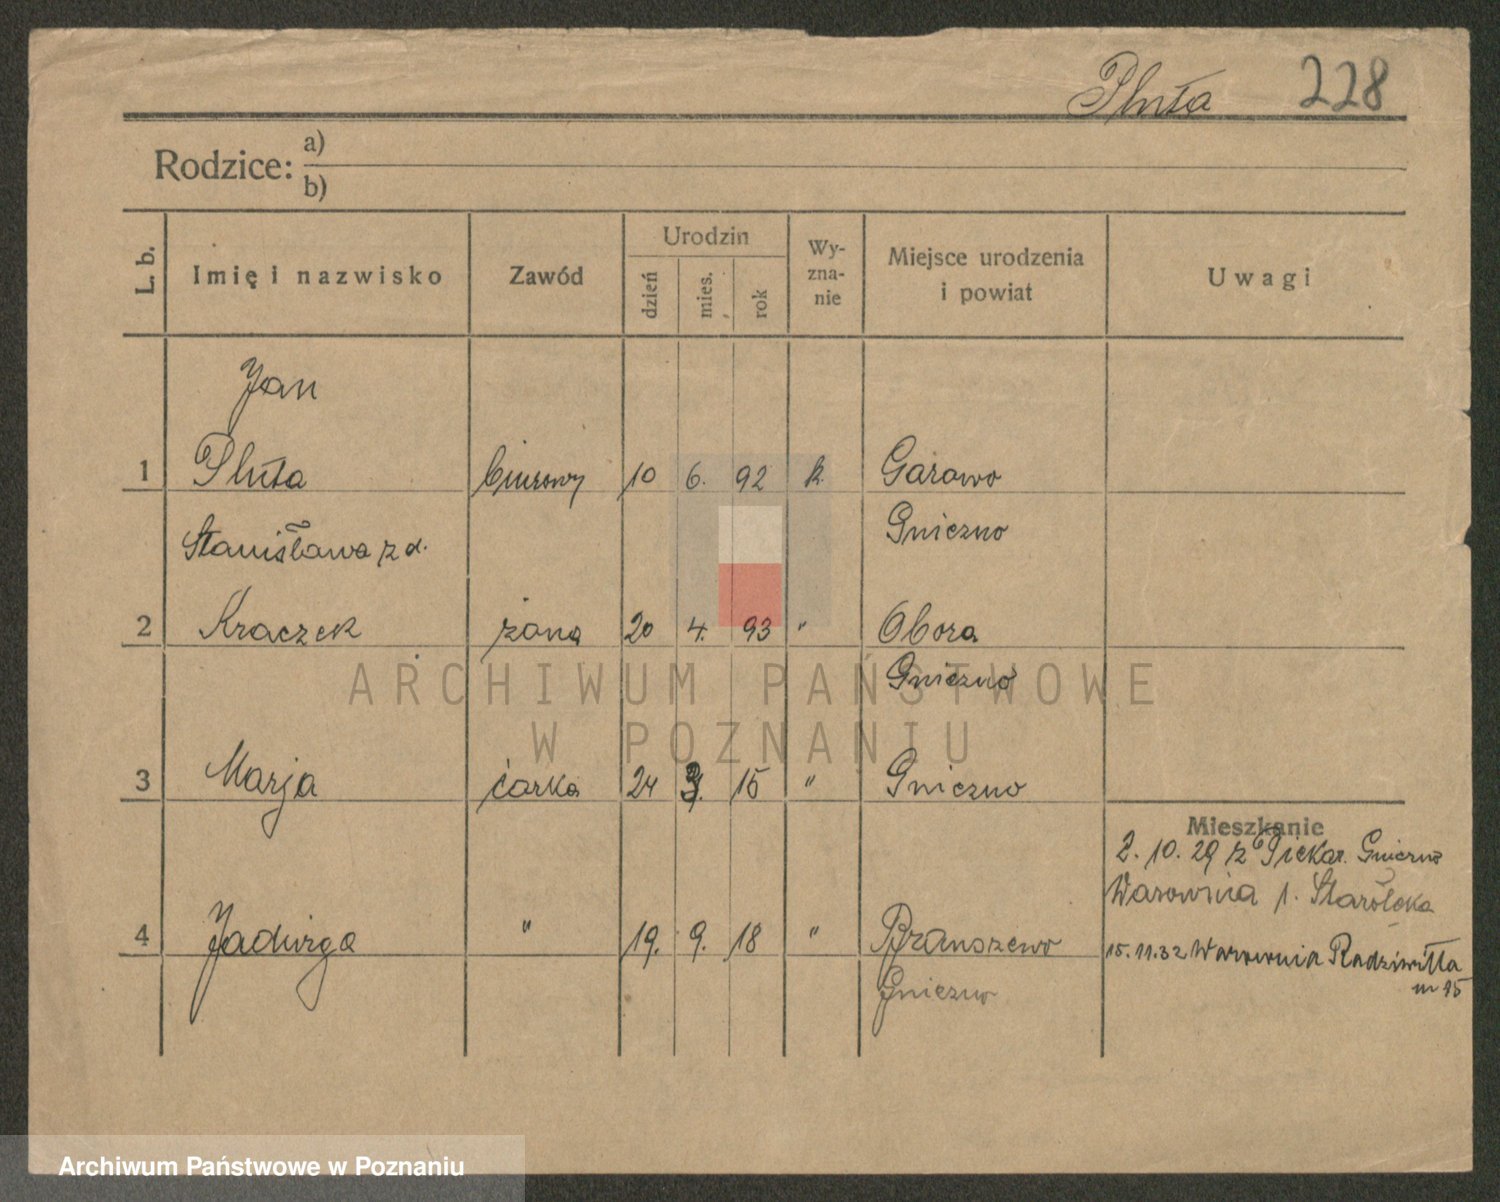 Pluta 228
Rodzice: a)
b)
L. b. Imię i nazwisko Zawód Urodzin dzień mies. rok Wy-zna-nie Miejsce urodzenia i powiat Uwagi
Jan
1 Pluta biurowy 10 6. 92 k. Garowo
Stanisława z d. Gniezno
2 Kraczek żona 20 4. 93 " Obora
Gniezno
3 Marja córka 24 3. 15 " Gniezno
Mieszkanie
2. 10. 29 z Piekar. Gniezno
Warownia p. Starołęka
4 Jadwiga " 19. 9. 18 "
15.11.32 Warownia Radziwiłła
m 15
Gniezno
ARCHIWUM PAŃSTWOWE
W POZNANIU
Archiwum Państwowe w Poznaniu